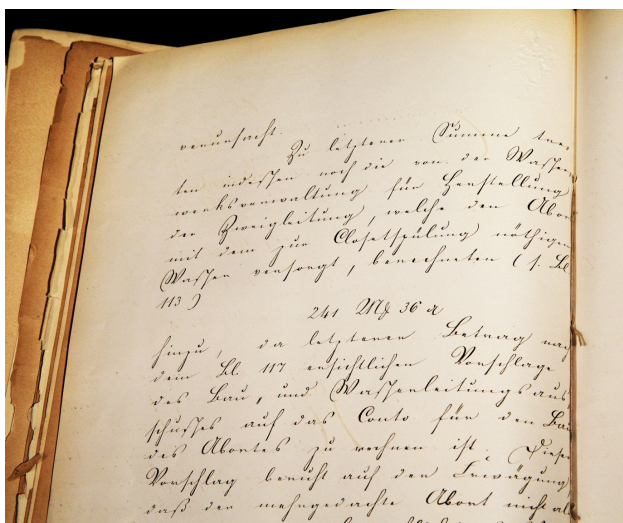 verursacht.
Zu letzterer Summe tre-
ten indessen noch die von der Wasser-
werksverwaltung für Herstellung
der Zweigleitung, welche den Abort
mit dem zur Closetspülung nöthigen
Wasser versorgt, berechneten (s. Bl.
113)
241 M 36 d
hinzu, da letzterer Betrag nach
dem Bl. 117 ersichtlichen Vorschlage
des Bau, und Wasserleitungsaus
schusses auf das Conto für den Bau
des Abortes zu rechnen ist. Dieser
Vorschlag beruht auf der Erwägung,
daß der mehrgedachte Abort nicht al